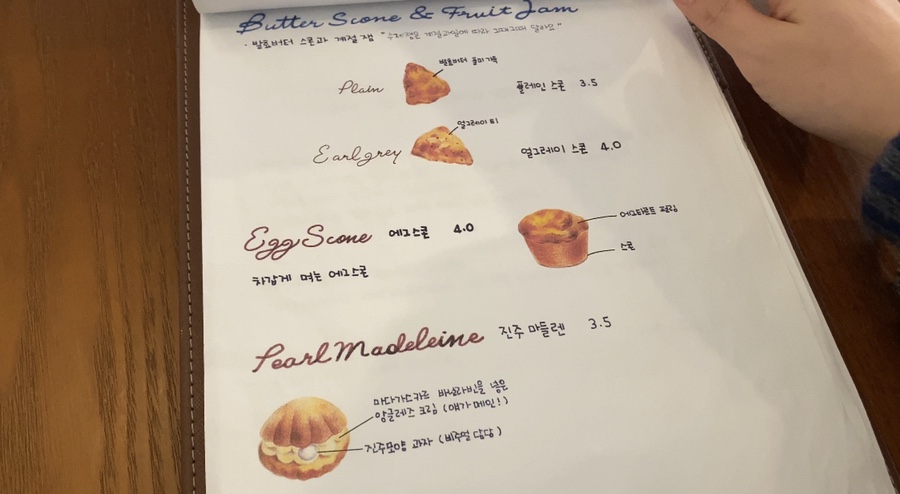 Butter Scone & Fruit Jam
· 발효버터 스콘과 계절 잼 "수제잼은 계절과일에 따라 그때그때 달라요"
Plain
발효버터 풍미가득
플레인 스콘 3.5
Earlgrey
얼그레이 티
얼그레이 스콘 4.0
Egg Scone 에그스콘 4.0
에그타르트 필링
스콘
차갑게 먹는 에그스콘
Pearl Madeleine 진주 마들렌 3.5
마다가스카르 바닐라빈을 넣은
앙글레즈 크림 (얘가 메인!)
진주모양 과자 (비주얼 담당)